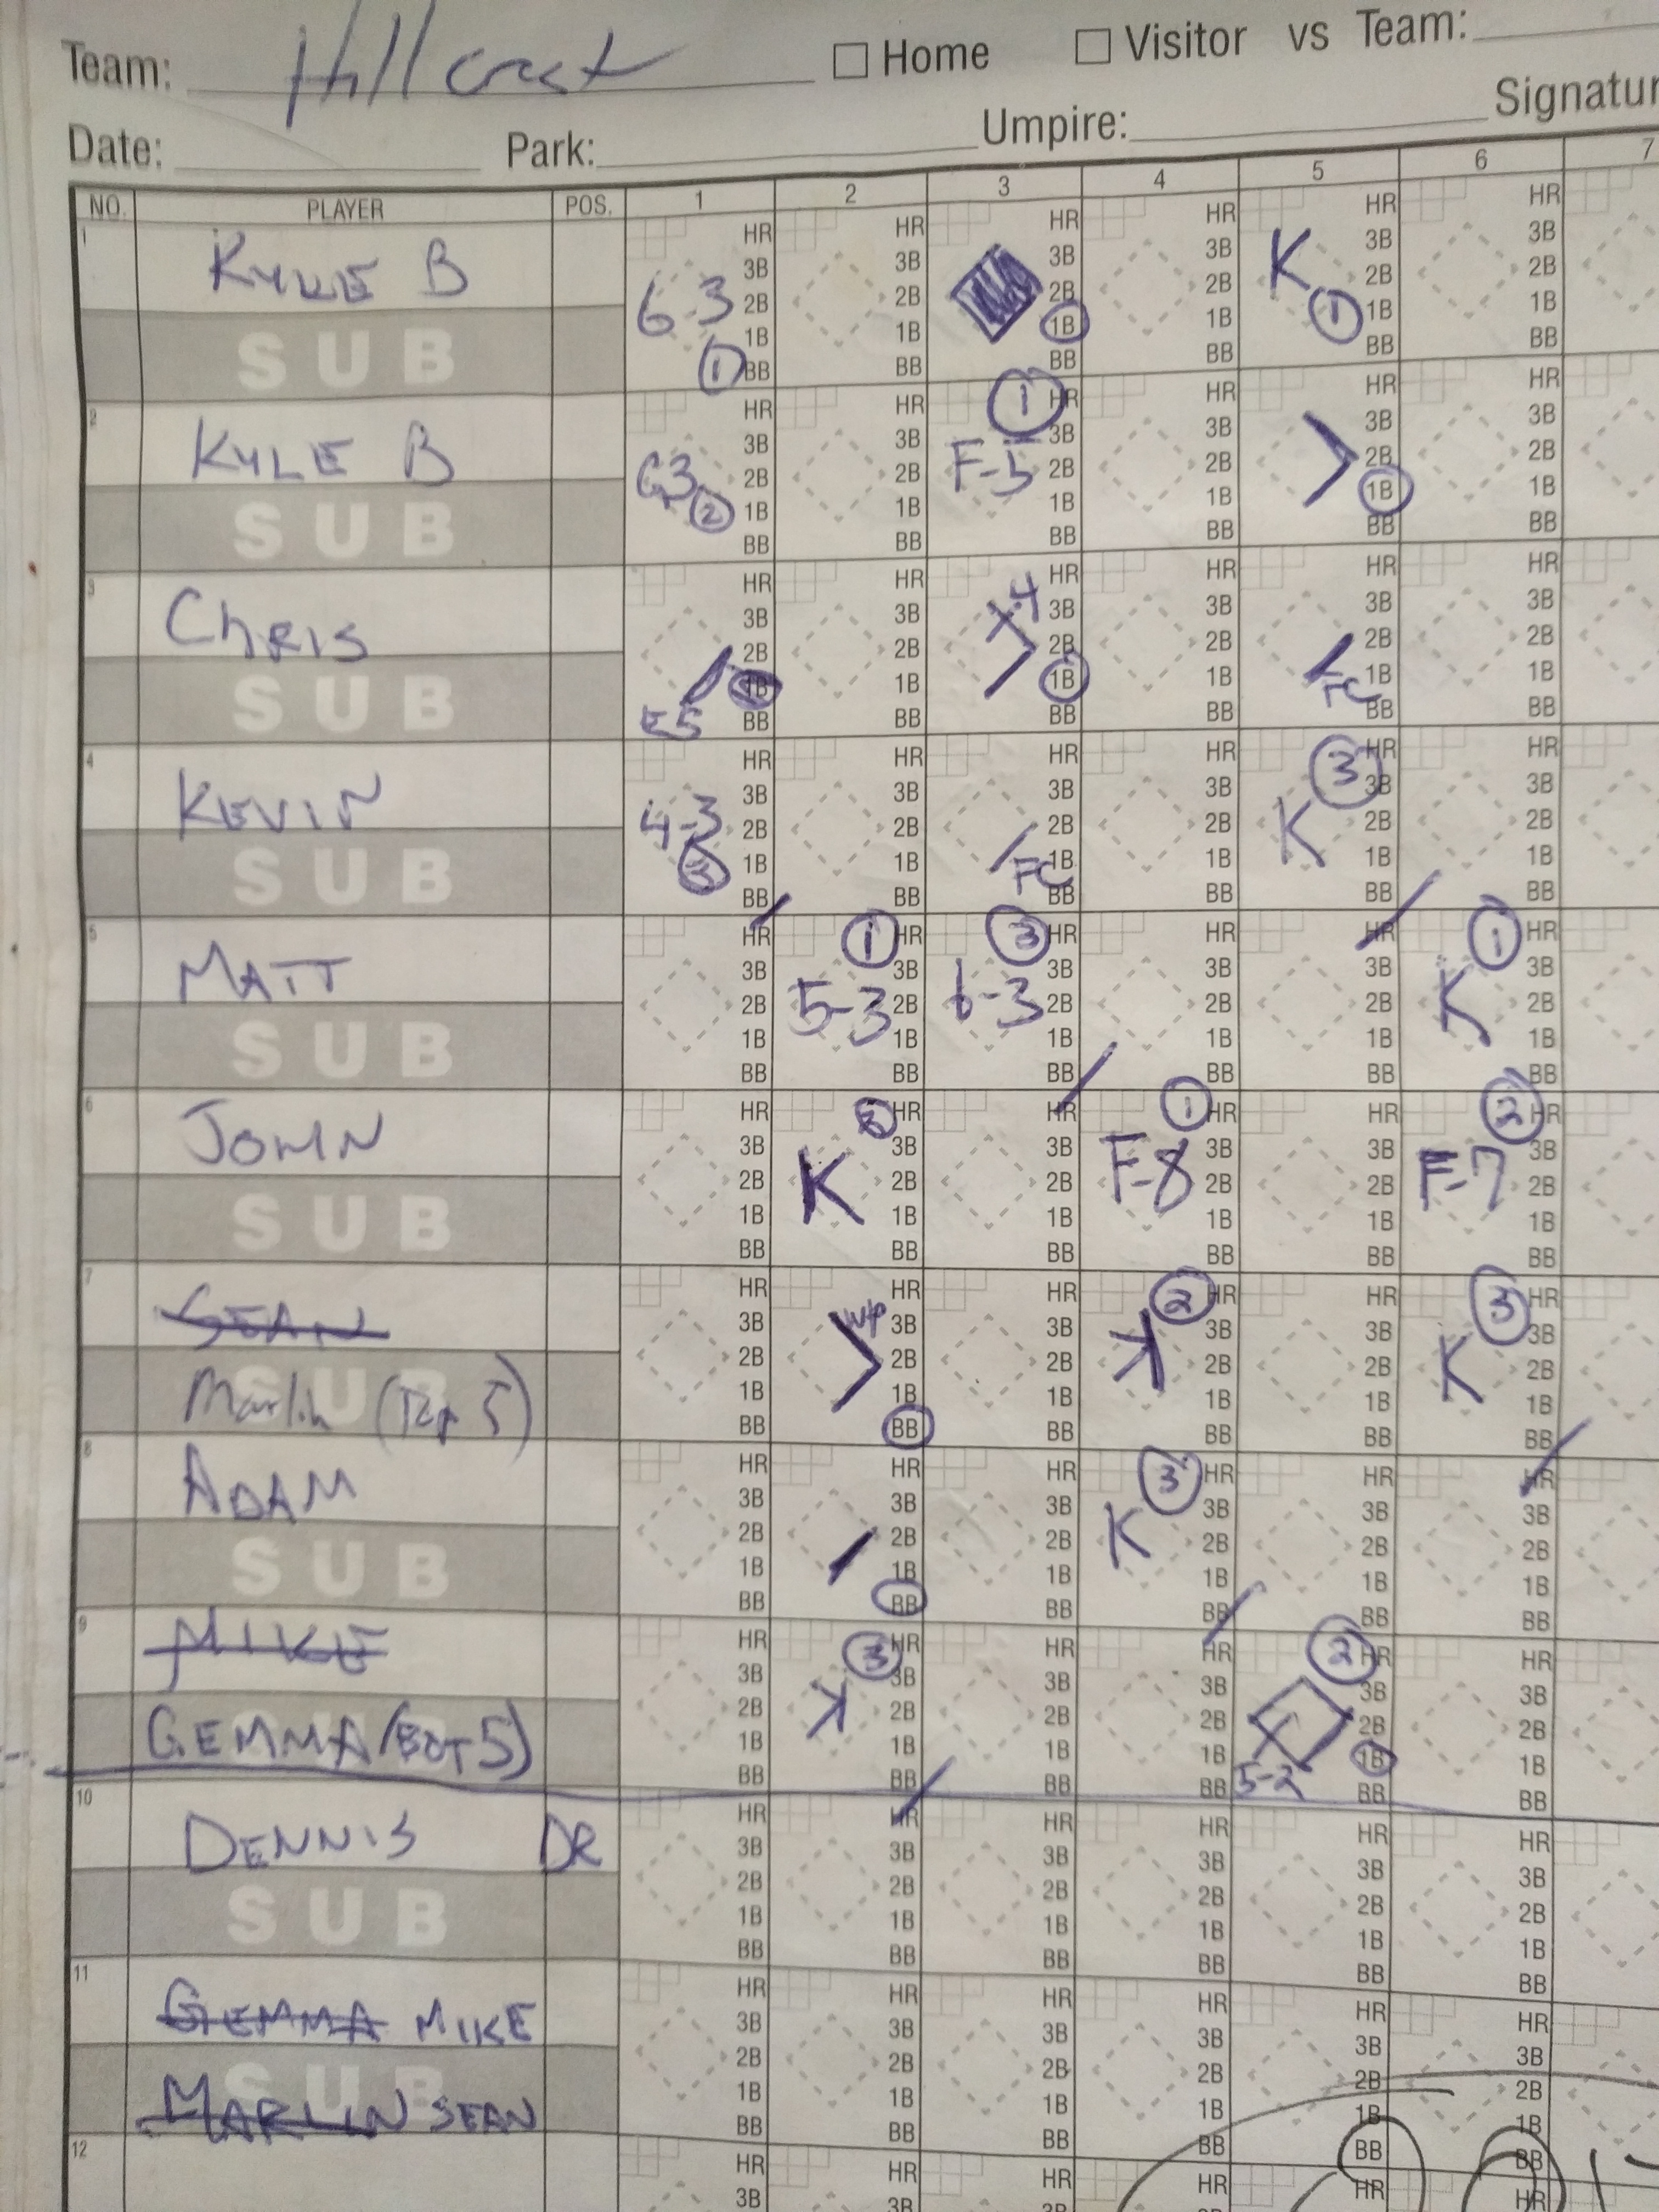 Team: Hillcrest □ Home □ Visitor vs Team:
Date: Park: Umpire: Signatur
NO. PLAYER POS. 1 2 3 4 5 6 7
1 KYLE B 6-3 ① 1B K ①
SUB
2 KYLE B G3 ② F-5 ① 1B
SUB
3 CHRIS E5 1B FC
SUB
4 KEVIN 4-3 ③ FC K ③
SUB
5 MATT 5-3 ① 6-3 ③ K ①
SUB
6 JOHN K ② F-8 ① F-7 ②
SUB
7 SEAN WP BB K ② K ③
SUB Marlin (Top 5)
8 ADAM BB K ③
SUB
9 MIKE K ③ 5-2 ② 1B
GEMMA (BOT 5)
10 DENNIS DR
SUB
11 GEMMA MIKE
SUB MARLIN SEAN
12